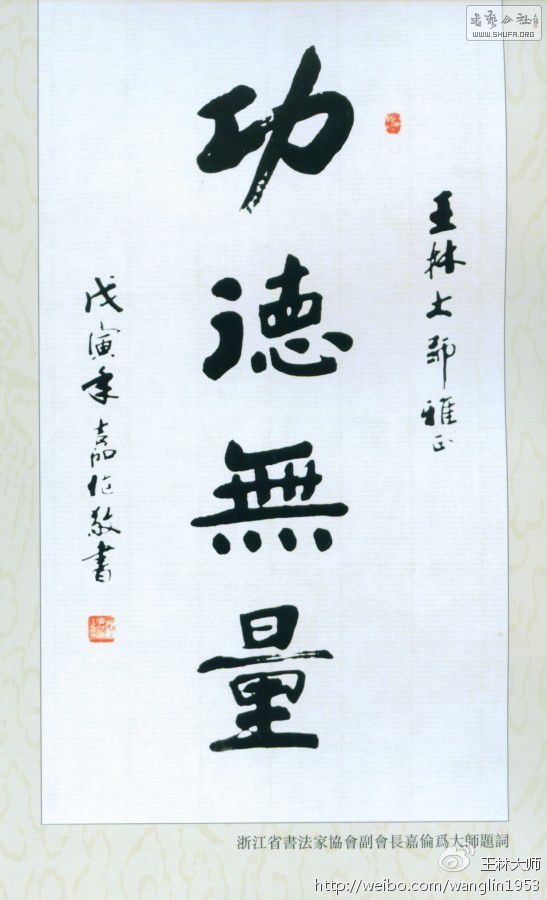 書藝公社
WWW.SHUFA.ORG
王林大師雅正
功德無量
戊寅年嘉倫敬書
浙江省書法家協會副會長嘉倫爲大師題詞
王林大师
http://weibo.com/wanglin1953